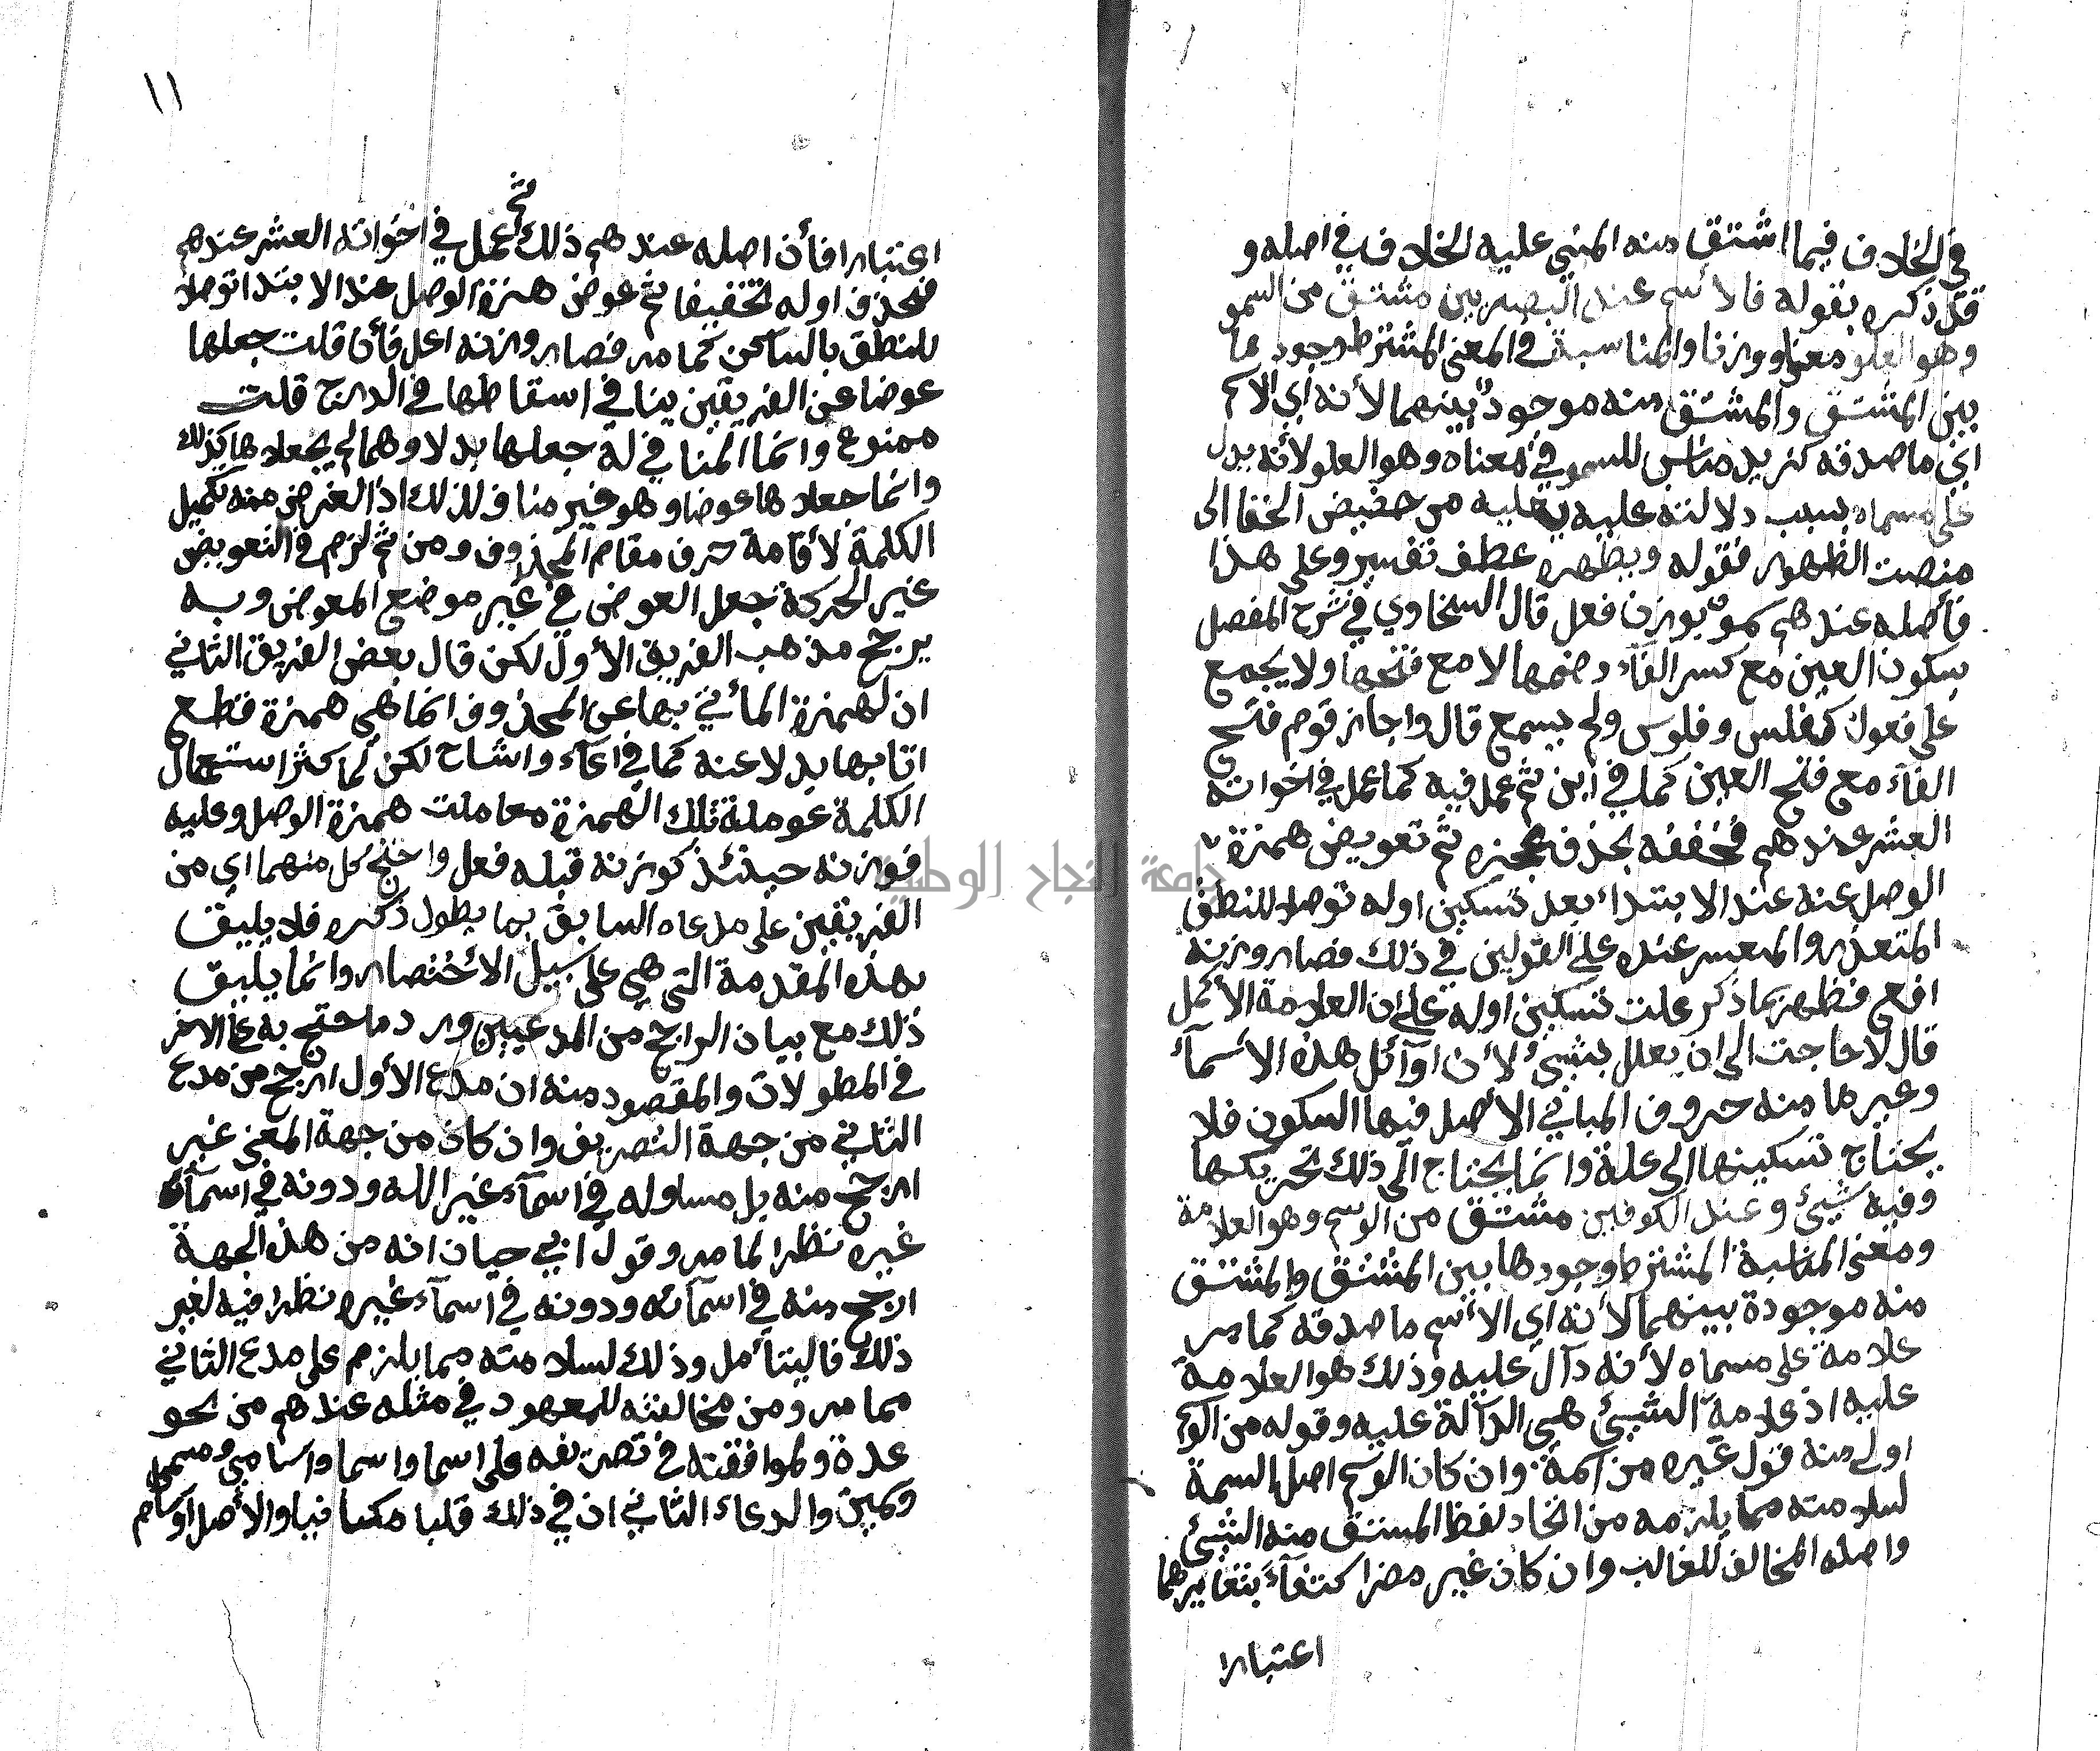 في الخلاف فيما اشتق منه المبني عليه الخلاف في اصله و
قد ذكره بقوله فالأسم عند البصريين مشتق من السمو
وهو العلو معنا ووزنا والمناسبة في المعنى المشترط وجودها
بين المشتق والمشتق منه موجودة بينهما لأنه اي الاسم
اي ما صدقه كزيد مناسب للسمو في معناه وهو العلو لأنه يدل
على مسماه بسبب دلالته عليه يعليه من حضيض الخفا الى
منصت الظهور فقوله ويظهره عطف تفسير وعلى هذا
فأصله عندهم سمو بوزن فعل قال السخاوي في شرح المفصل
بسكون العين مع كسر الفآء وضمها لا مع فتحها ولا يجمع
على فعول كفلس وفلوس ولم يسمع قال واجاز قوم فتح
الفآء مع فتح العين كما في أين ثم عمل فيه كما عمل في اخواته
العشر عندهم فخففه بحذف عجزه ثم تعويض همزة
الوصل عنه عند الابتداء بعد تسكين اوله توصلا للنطق
المتعذر والمتعسر عنده على القولين في ذلك فصار وزنه
افع فظهر بما ذكر علت تسكين اوله على ان العلامة الأكمل
قال لا حاجت الى ان يعلل بشيئ لأن اوآئل هذه الأسمآء
وغيرها منه حروف المباني الأصل فيها السكون فلا
يحتاج تسكينها الى علة وانما يحتاج الى ذلك تحريكها
وفيه شيئ وعند الكوفين مشتق من الوسم وهو العلامة
ومعنى المناسبة المشترط وجودها بين المشتق والمشتق
منه موجودة بينهما لأنه اي الأسم ما صدقه كما مر
علامة على مسماه لأنه دآل عليه وذلك هو العلامة
عليه اذ علامة الشيئ هي الدآلة عليه وقوله من الوسم
اولى منه قول غيره من سمة وان كان الوسم اصل السمة
لسلامته مما يلزمه من اتحاد لفظ المشتق منه الشيئ
واصله المخالف للغالب وان كان غير مضر اكتفآء بتغايرهما
اعتبارا
١١
اعتبارا فأن اصله عندهم ذلك ثم عمل في اخواته العشر عندهم
فحذف اوله تخفيفا ثم عوض همزة الوصل عند الابتدا توصلا
للنطق بالساكن كما مر فصار وزنه اعل فأن قلت جعلها
عوضا عن الفريقين ينافي اسقاطها في الدرج قلت
ممنوع وانما المنافي له جعلها بدلا وهما لم يجعلاها كذلك
وانما جعلاها عوضا وهو غير مناف لذلك اذ الغرض منه تكميل
الكلمة لأقامة حرف مقام المحذوف ومن ثم لزم في التعويض
غير الحركة جعل العوض في غير موضع المعوض وبه
يرجح مذهب الفريق الأول لكن قال بعض الفريق الثاني
ان لهمزة المأتي بها عن المحذوف انما هي همزة قطع
اتا بها بدلا عنه كما في اعآء واشاح لكن لما كثر استعمال
الكلمة عوملة تلك الهمزة معاملت همزة الوصل وعليه
فوزنه حينئذ كوزنه قبله فعل واحتج كل منهما اي من
الفريقين على مدعاه السابق بما يطول ذكره فلا يليق
بهذه المقدمة التي هي على سبيل الأختصار وانما يليق
ذلك مع بيان الراجح من المدعيين ورد ما احتج به على الاخر
في المطولات والمقصود منه ان مدع الأول ارجح من مدع
الثاني من جهة التصريف وان كان من جهة المعنى غير
ارجح منه بل مساو له في اسمآء غير الله ودونه في اسمآئه
غيره نظرا لما مر وقول ابي حيان انه من هذه الجهة
ارجح منه في اسمآئه ودونه في اسمآء غيره نظرا فيه لغير
ذلك فاليتأمل وذلك لسلامته مما يلزم على مدع الثاني
مما مر ومن مخالفته للمعهود في مثله عندهم من نحو
عدة ولموافقته في تصريفه على اسما واسما واسامي ومسمى
وسمين والدعاء الثاني ان في ذلك قلبا مكسا فيا والأصل اوسام
جامعة النجاح الوطنية